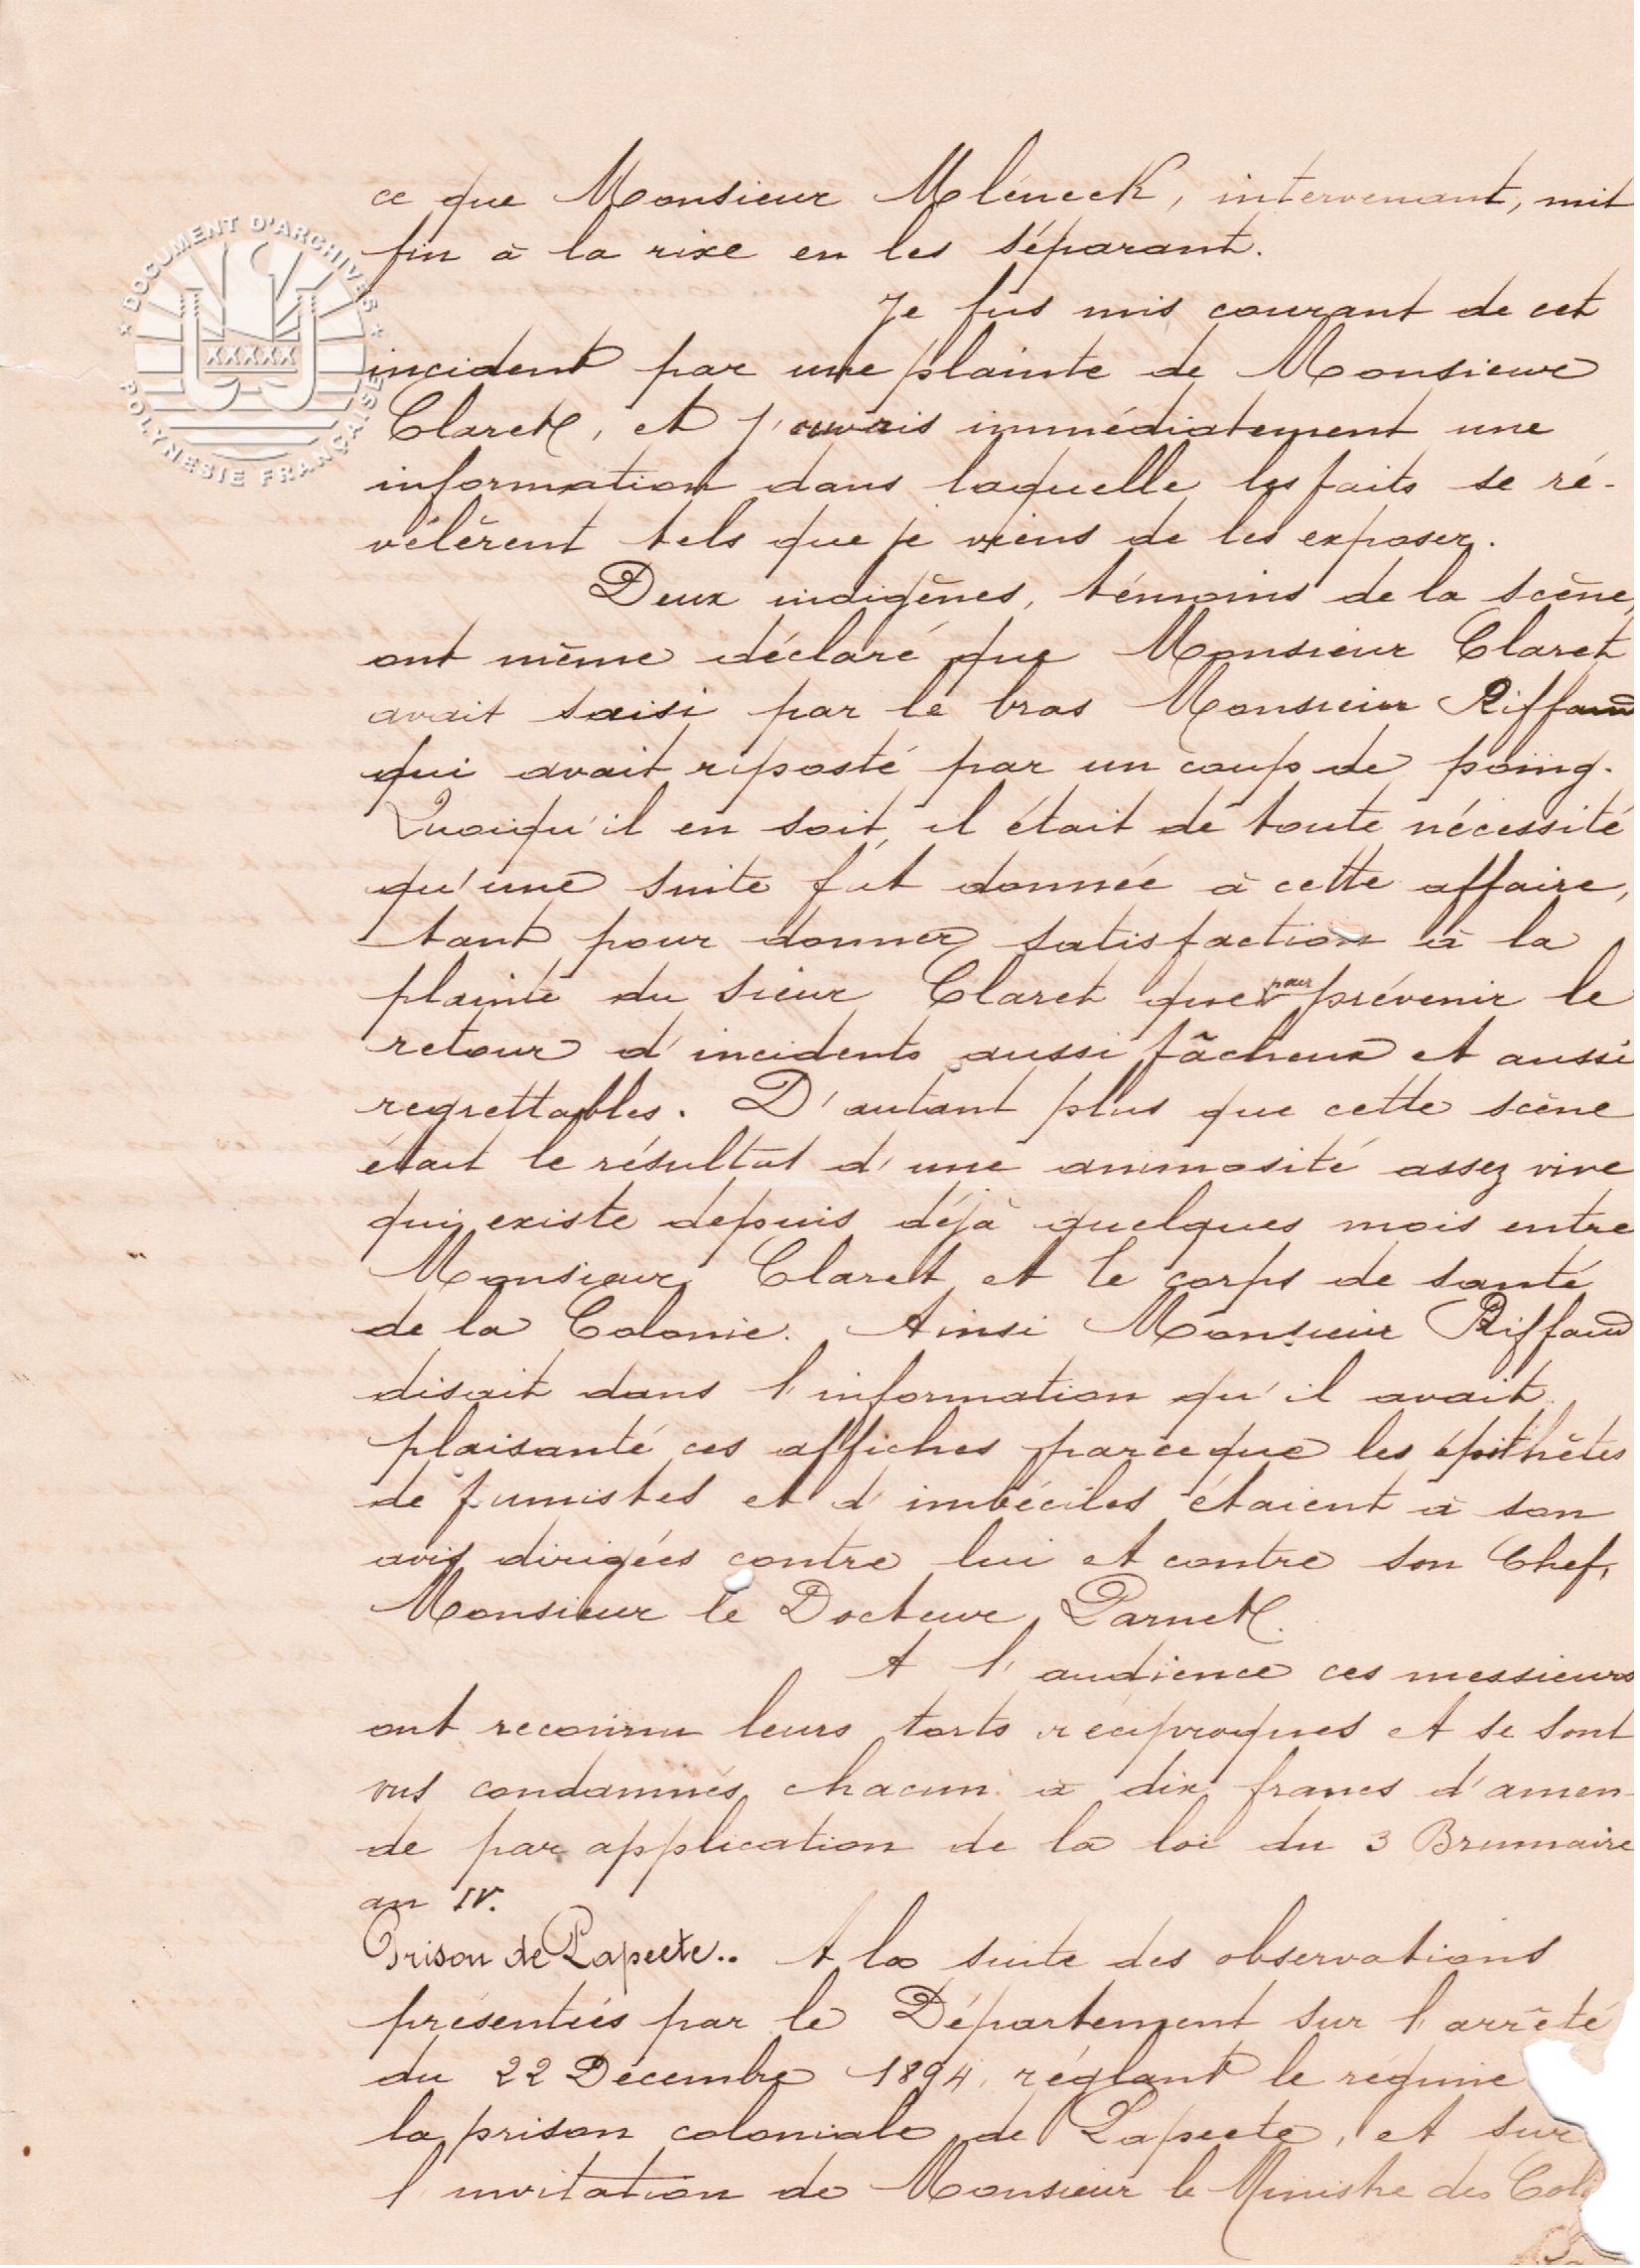 ce que Monsieur Mléneck, intervenant, mit
fin à la rixe en les séparant.
Je fus mis courant de cet
incident par une plainte de Monsieur
Claret, et j'ouvris immédiatement une
information dans laquelle les faits se ré-
vélèrent tels que je viens de les exposer.
Deux indigènes, témoins de la scène,
ont même déclaré que Monsieur Claret
avait saisi par le bras Monsieur Riffaud
qui avait riposté par un coup de poing.
Quoiqu'il en soit, il était de toute nécessité
qu'une suite fût donnée à cette affaire,
tant pour donner satisfaction à la
plainte du sieur Claret que pour prévenir le
retour d'incidents aussi fâcheux et aussi
regrettables. D'autant plus que cette scène
était le résultat d'une animosité assez vive
qui existe depuis déjà quelques mois entre
Monsieur Claret et le corps de santé
de la Colonie. Ainsi Monsieur Riffaud
disait dans l'information qu'il avait
plaisanté ces affiches parceque les épithètes
de fumistes et d'imbéciles étaient à son
avis dirigées contre lui et contre son Chef,
Monsieur le Docteur Parnet.
A l'audience ces messieurs
ont reconnu leurs torts réciproques et se sont
vus condamnés chacun à dix francs d'amen-
de par application de la loi du 3 Brumaire
an IV.
Prison de Papeete.. A la suite des observations
présentées par le Département sur l'arrêté
du 22 Décembre 1894, réglant le régime
la prison coloniale de Papeete, et sur
l'invitation de Monsieur le Ministre des Col
DOCUMENT D'ARCHIVES
XXXXX
POLYNESIE FRANÇAISE